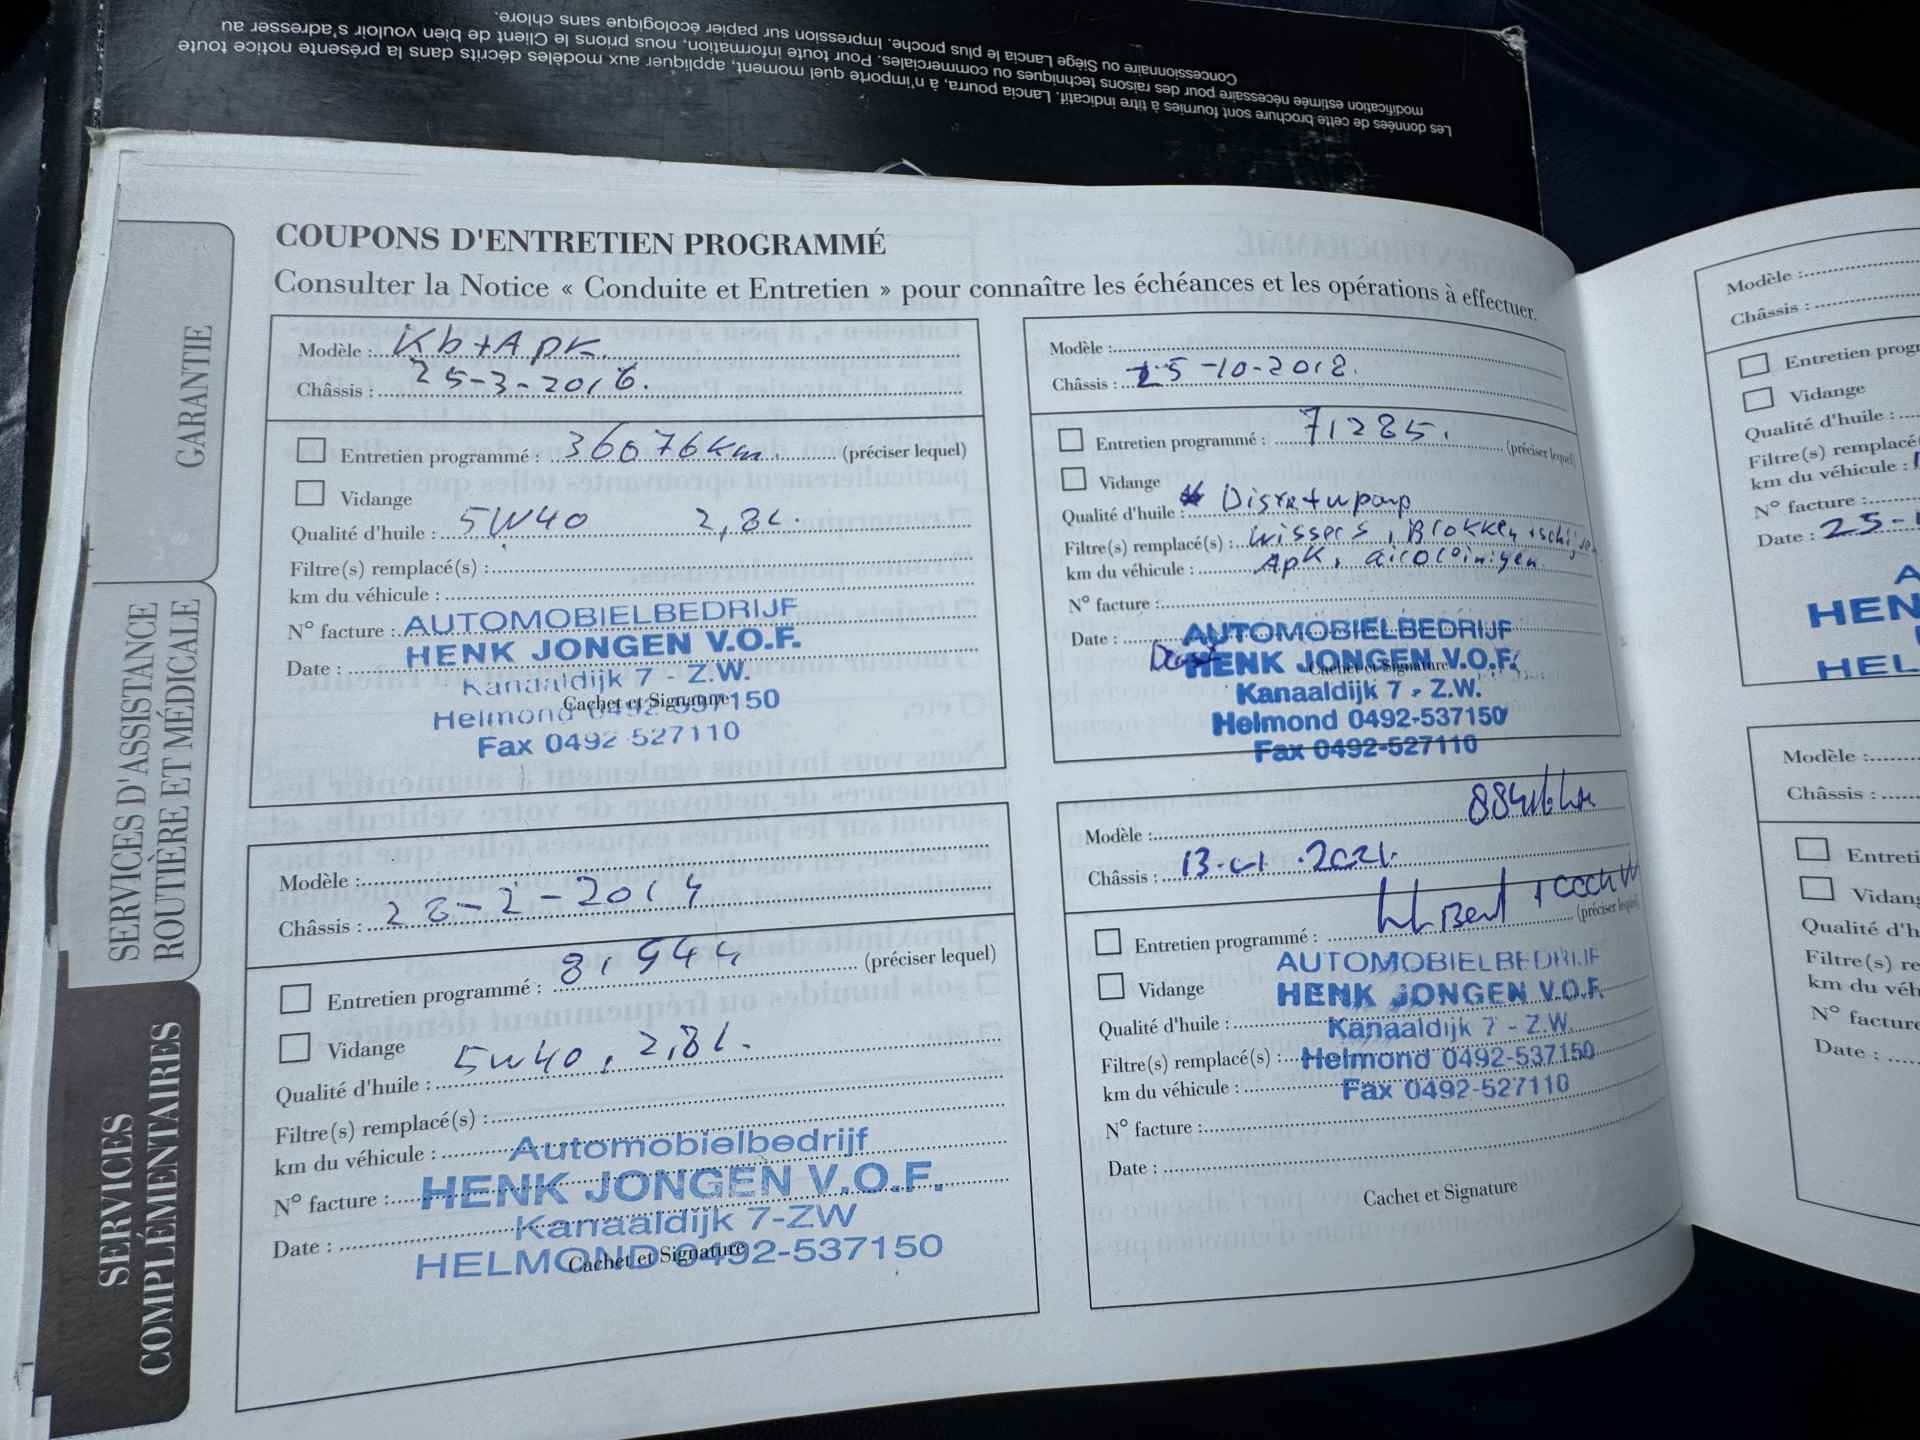 Les données de cette brochure sont fournies à titre indicatif. Lancia pourra, à n'importe quel moment, appliquer aux modèles décrits dans la présente notice toute
modification estimée nécessaire pour des raisons techniques ou commerciales. Pour toute information, nous prions le Client de bien vouloir s'adresser au
Concessionnaire ou Siège Lancia le plus proche. Impression sur papier écologique sans chlore.
GARANTIE
SERVICES D'ASSISTANCE
ROUTIÈRE ET MÉDICALE
SERVICES
COMPLÉMENTAIRES
COUPONS D'ENTRETIEN PROGRAMMÉ
Consulter la Notice « Conduite et Entretien » pour connaître les échéances et les opérations à effectuer.
Modèle : Kb+Apk.
Châssis : 25-3-2016.
Entretien programmé : 36076km. (préciser lequel)
Vidange
Qualité d'huile : 5W40 2,8L.
Filtre(s) remplacé(s) :
km du véhicule :
N° facture :
Date :
Cachet et Signature
AUTOMOBIELBEDRIJF
HENK JONGEN V.O.F.
Kanaaldijk 7 - Z.W.
Helmond 0492-537150
Fax 0492-527110
Modèle :
Châssis : 28-2-2014
Entretien programmé : (préciser lequel)
Vidange
Qualité d'huile : 5W40, 2,8L.
Filtre(s) remplacé(s) :
km du véhicule :
N° facture :
Date :
Cachet et Signature
Automobielbedrijf
HENK JONGEN V.O.F.
Kanaaldijk 7-ZW
HELMOND 0492-537150
Modèle :
Châssis : 25-10-2018.
Entretien programmé : 71285. (préciser lequel)
Vidange
Qualité d'huile : Distr + wpomp
Filtre(s) remplacé(s) : wissers, Blokken + schijven
km du véhicule : Apk, aircoreinigen.
N° facture :
Date :
Cachet et Signature
AUTOMOBIELBEDRIJF
HENK JONGEN V.O.F.
Kanaaldijk 7 - Z.W.
Helmond 0492-537150
Fax 0492-527110
Modèle :
Châssis : 13-01-2021.
Entretien programmé : (préciser lequel)
Vidange
Qualité d'huile :
Filtre(s) remplacé(s) :
km du véhicule :
N° facture :
Date :
Cachet et Signature
AUTOMOBIELBEDRIJF
HENK JONGEN V.O.F.
Kanaaldijk 7 - Z.W.
Helmond 0492-537150
Fax 0492-527110
Modèle :
Châssis :
Entretien progr
Vidange
Qualité d'huile :
Filtre(s) remplacé(
km du véhicule :
N° facture :
Date : 25-
A
HEN
HEL
Modèle :
Châssis :
Entreti
Vidang
Qualité d'h
Filtre(s) re
km du véh
N° facture
Date :